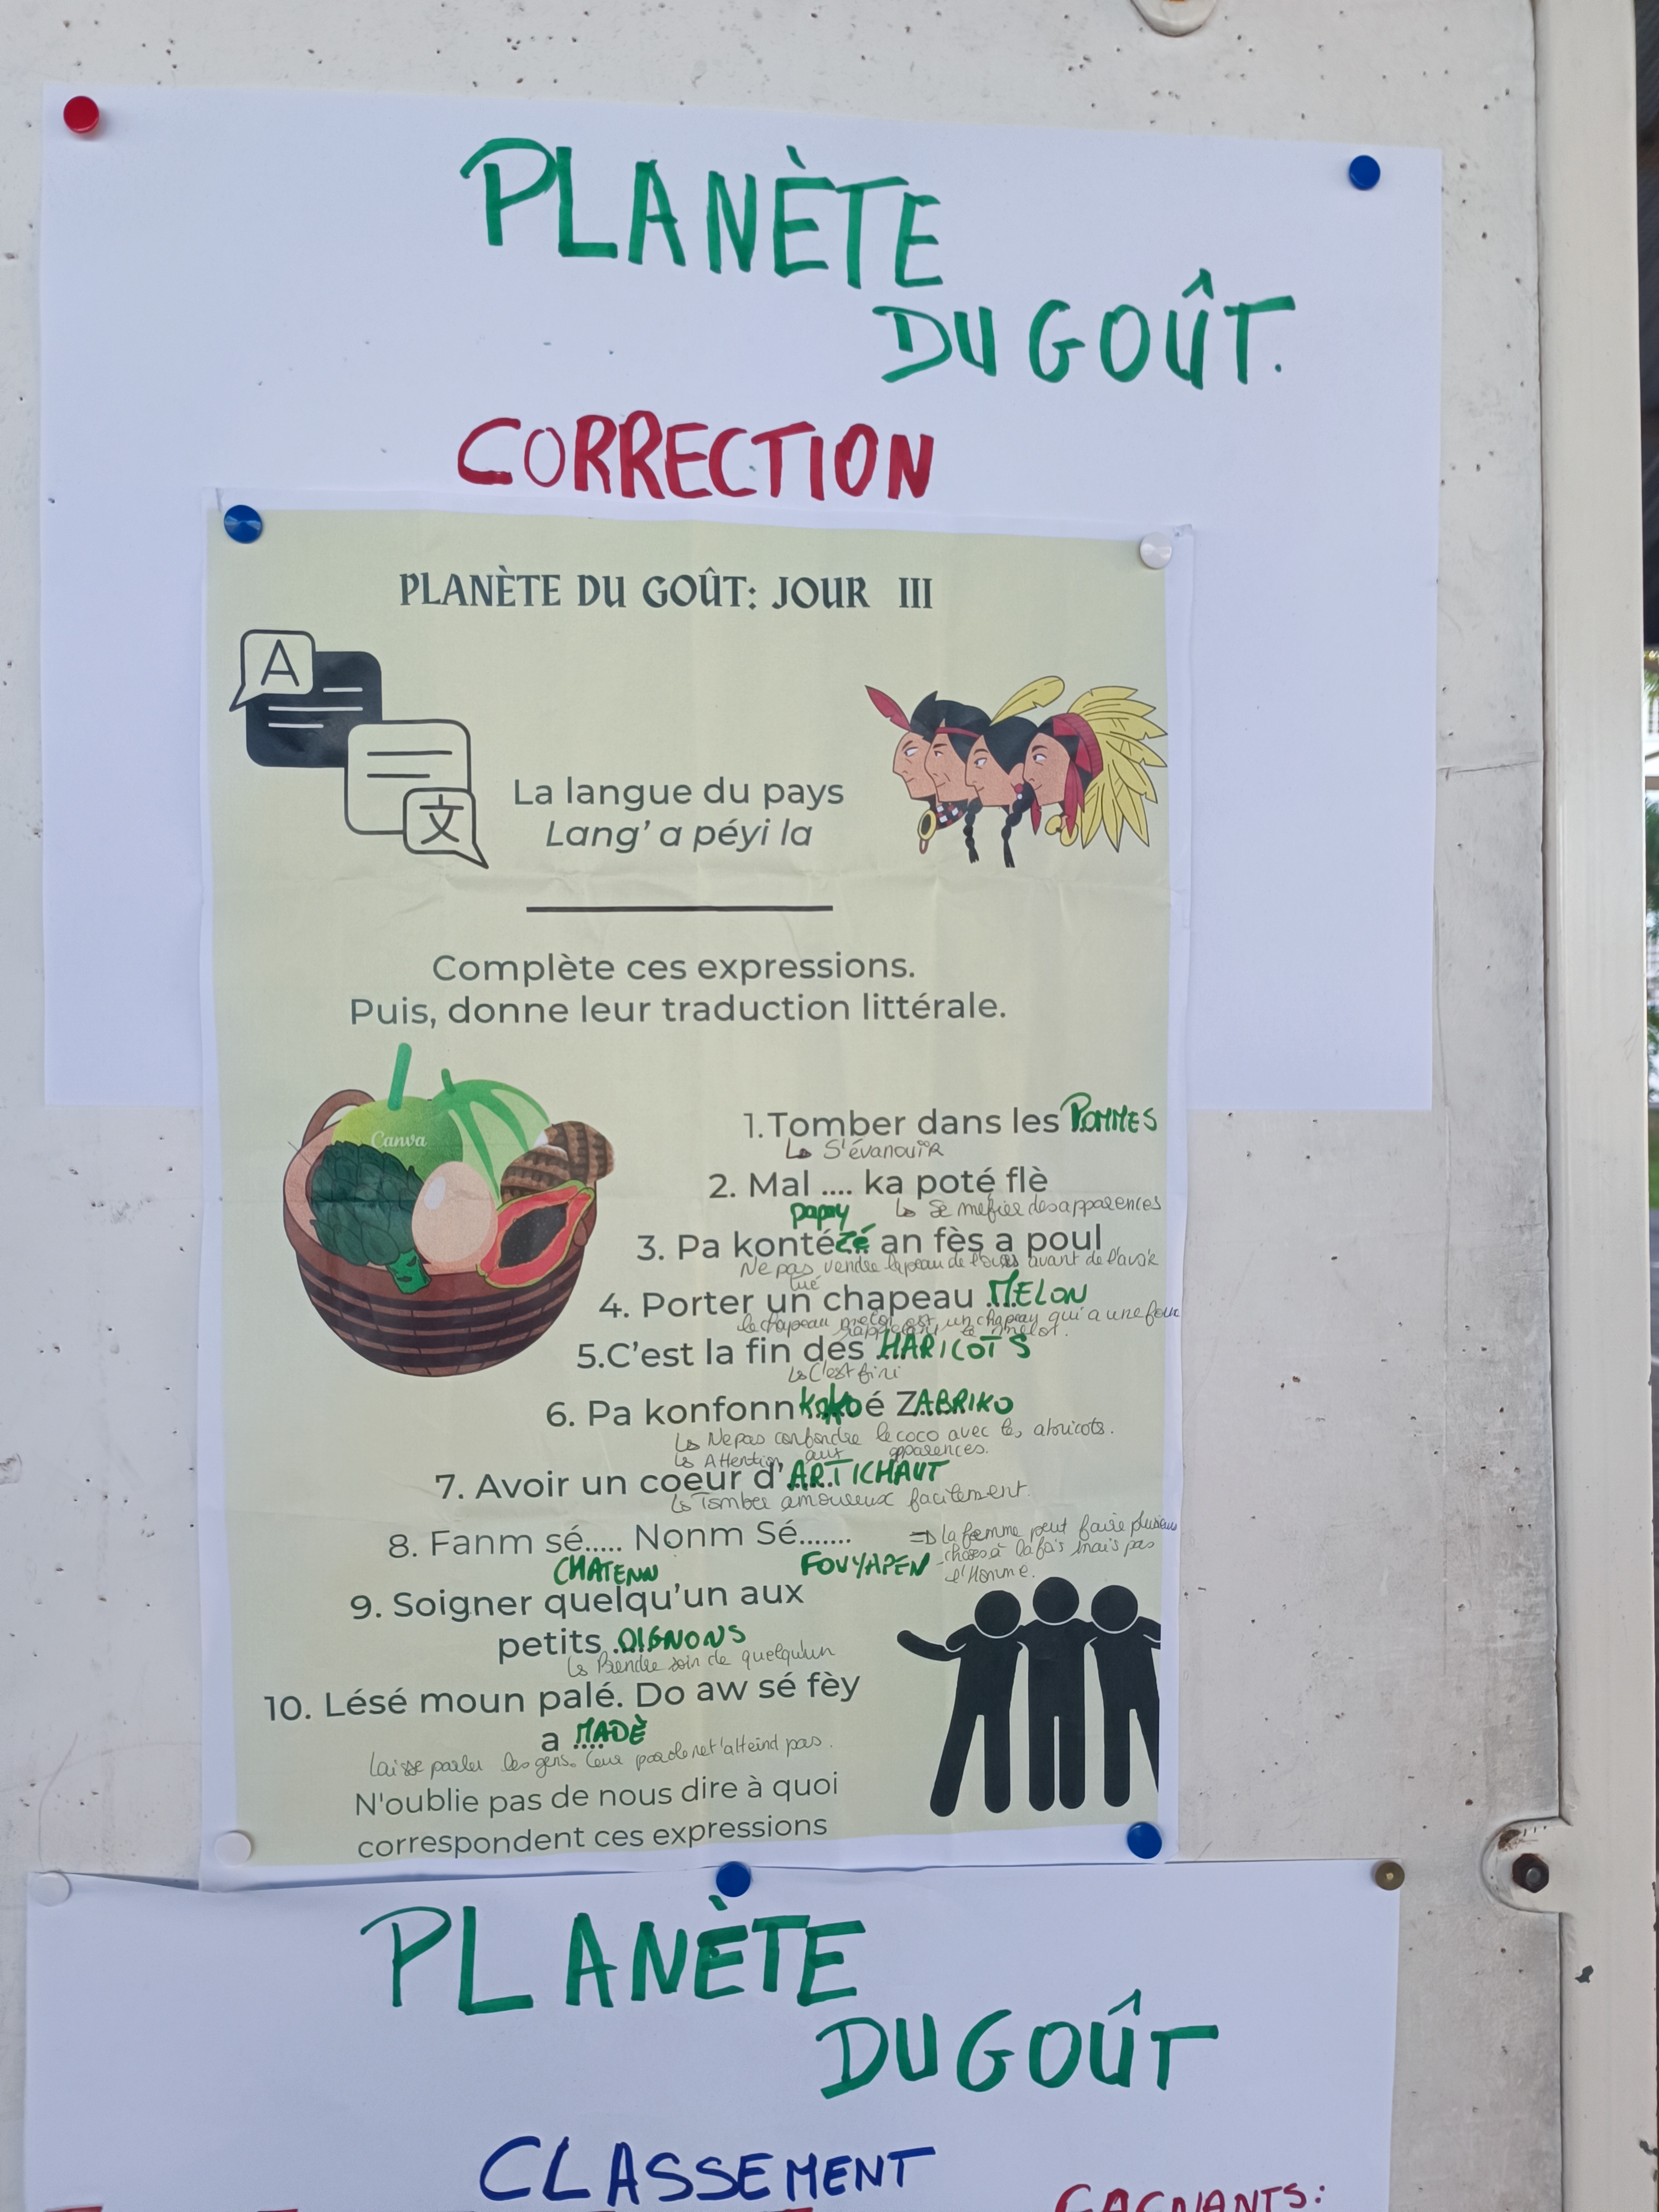 PLANÈTE
DU GOÛT.
CORRECTION
PLANÈTE DU GOÛT: JOUR III
A
文
La langue du pays
Lang' a péyi la
Complète ces expressions.
Puis, donne leur traduction littérale.
Canva
1.Tomber dans les POMMES
↳ S'évanouir
2. Mal .... ka poté flè
papay ↳ Se méfier des apparences
3. Pa konté zé an fès a poul
Ne pas vendre la peau de l'ours avant de l'avoir
tué
4. Porter un chapeau MELON
le chapeau melon est un chapeau qui a une forme
rappelant le melon.
5.C'est la fin des HARICOTS
↳ C'est fini
6. Pa konfonn koko é ZABRIKO
↳ Ne pas confondre le coco avec les abricots.
↳ Attention aux apparences.
7. Avoir un coeur d'ARTICHAUT
↳ Tomber amoureux facilement
8. Fanm sé..... Nonm Sé.......
CHATENN FOUYAPEN
⇒ la femme peut faire plusieurs
choses à la fois mais pas
l'Homme.
9. Soigner quelqu'un aux
petits OIGNONS
↳ Prendre soin de quelqu'un
10. Lésé moun palé. Do aw sé fèy
a MADÈ
Laisse parler les gens. Leur parole ne t'atteind pas.
N'oublie pas de nous dire à quoi
correspondent ces expressions
PLANÈTE
DU GOÛT
CLASSEMENT
GAGNANTS: